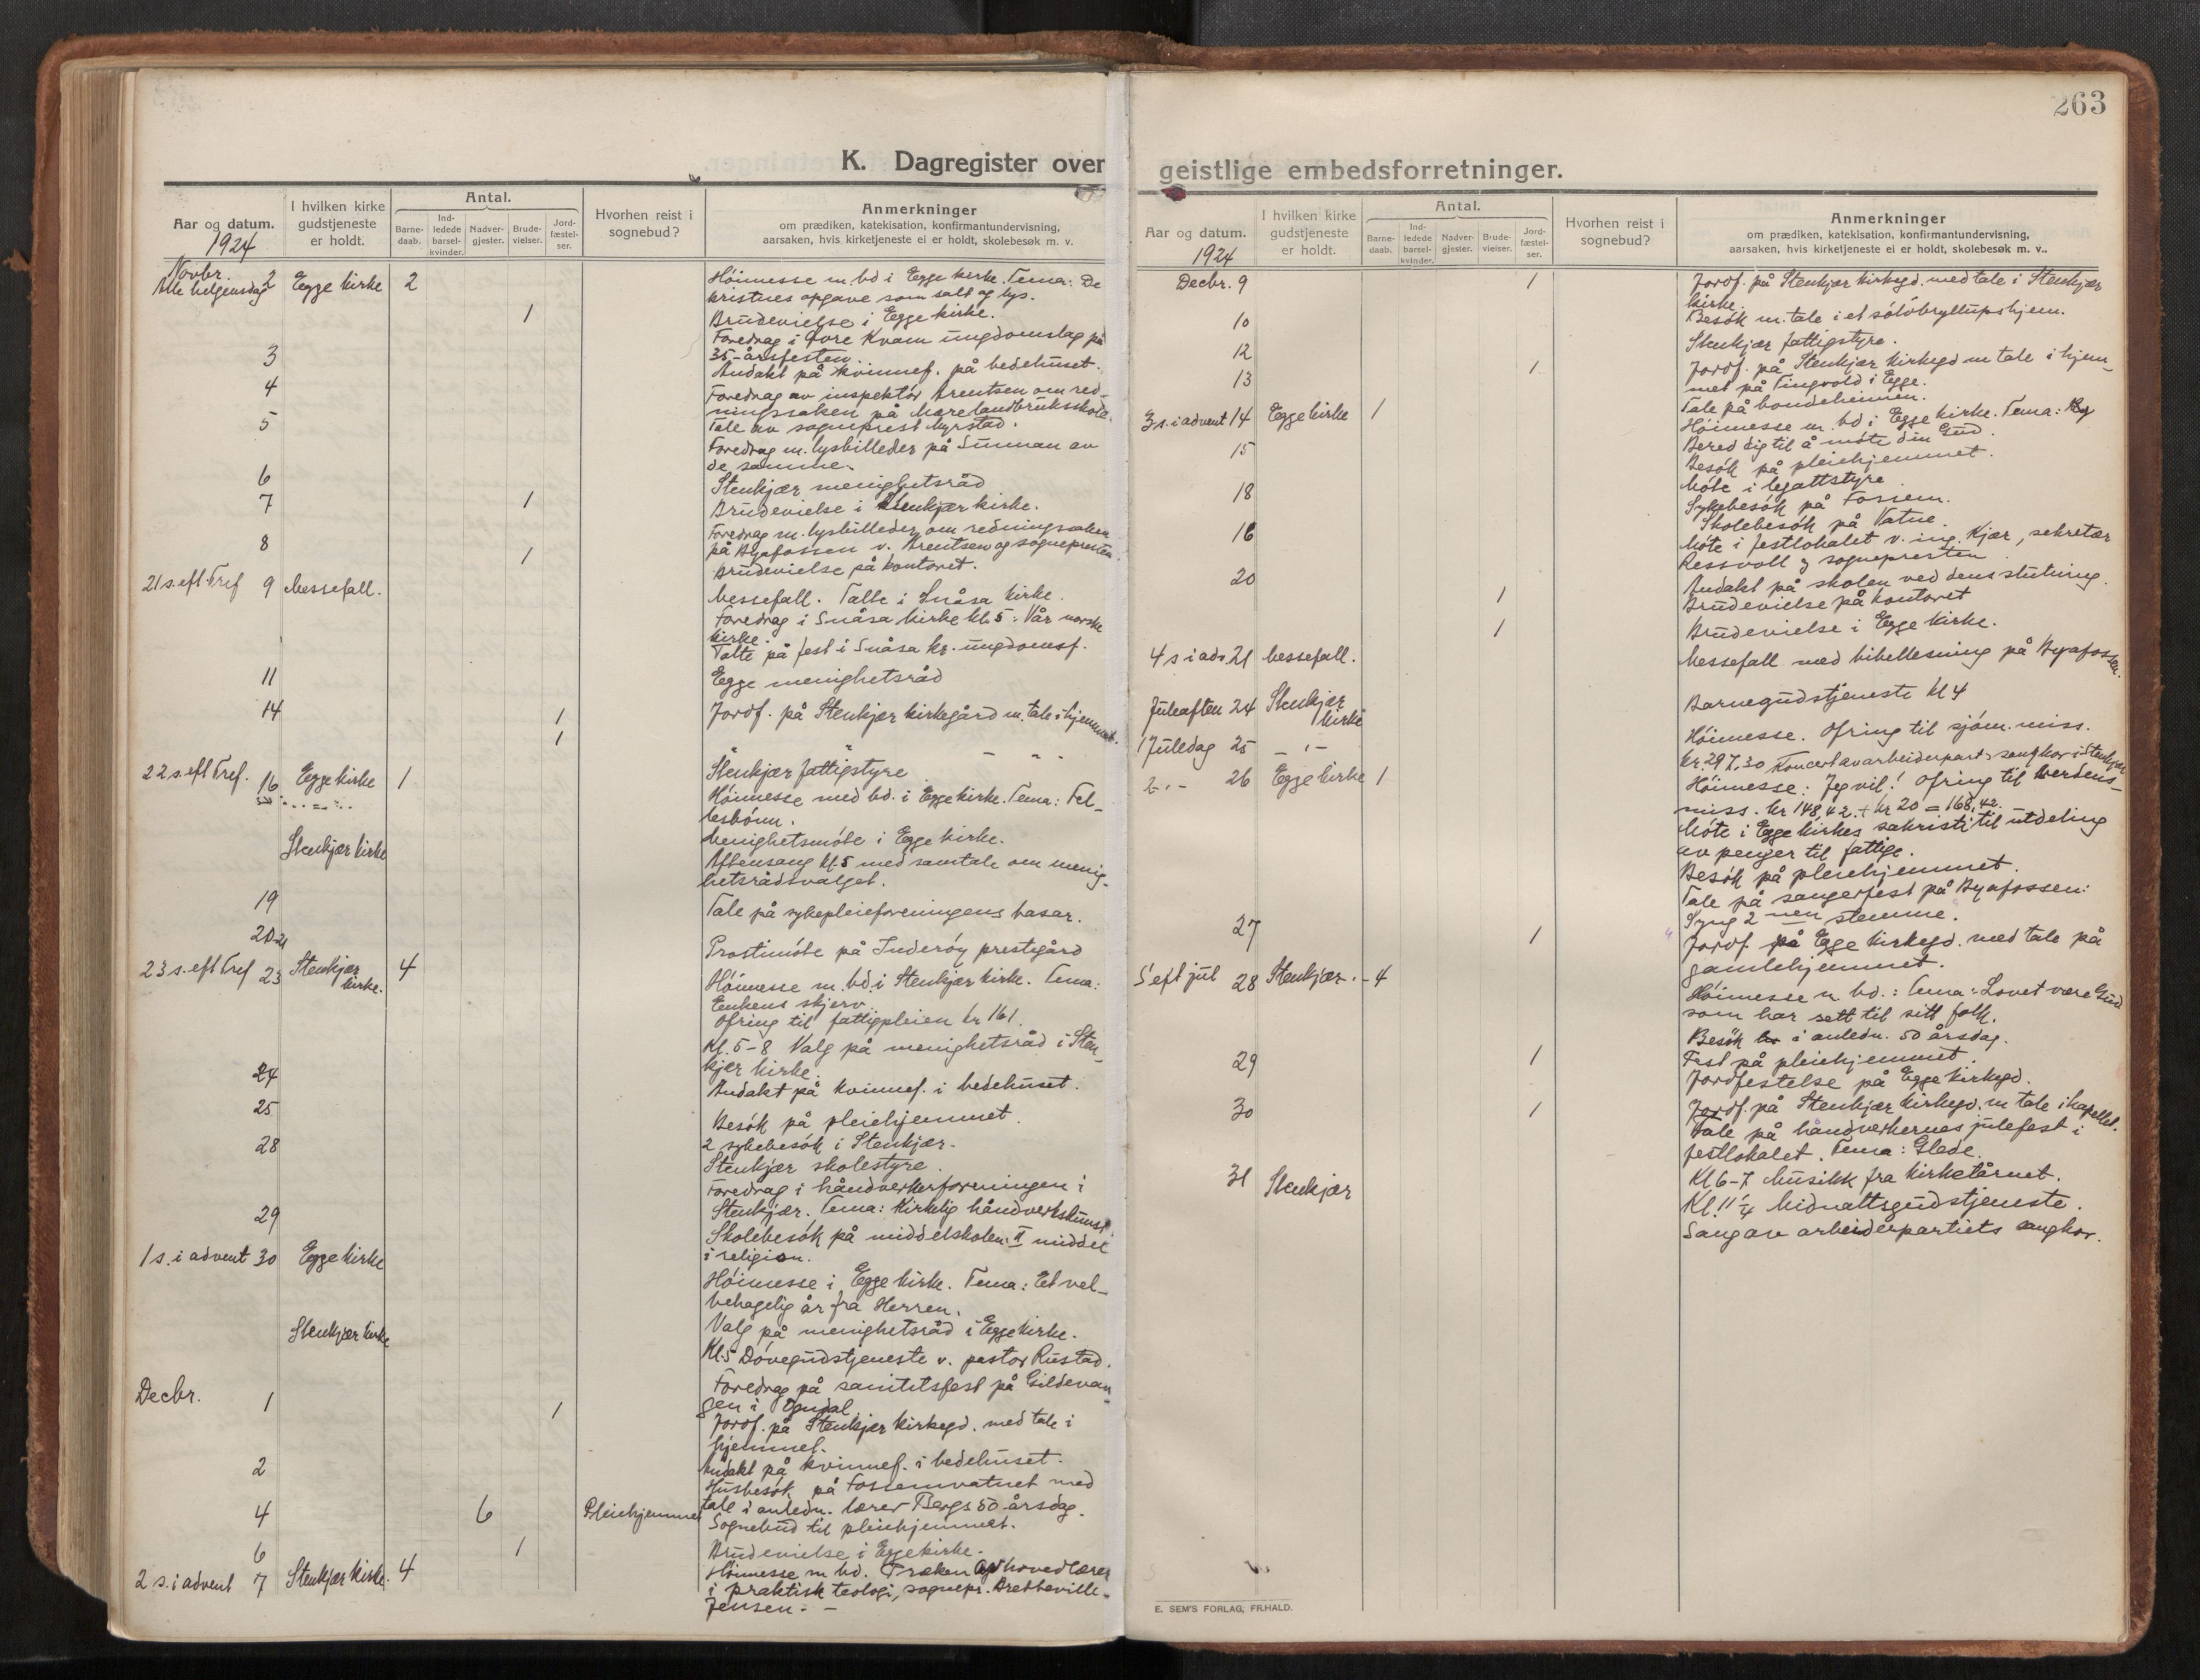 K. Dagregister over
Aar og datum.
1924
I hvilken kirke gudstjeneste er holdt.
Antal.
Barne-daab.
Ind-ledede barsel-kvinder.
Nadver-gjester.
Brude-vielser.
Jord-fæstel-ser.
Hvorhen reist i sognebud?
Anmerkninger
om prædiken, katekisation, konfirmantundervisning,
aarsaken, hvis kirketjeneste ei er holdt, skolebesøk m. v.
Novbr.
Alle helgensdag 2 Egge kirke 2 Höimesse m. bd i Egge kirke. Tema: De
kristnes opgave som salt og lys.
1 Brudevielse i Egge kirke.
Foredrag i Kvam ungdomslag på
35-årsfesten.
3 Andakt på kvinnef. på bedehuset.
4 Foredrag av inspektör Arentsen om red-
ningssaken på Mære landbruksskole.
5 Tale av sogneprest Myrstad.
Foredrag m. lysbilleder på Sunnan av
de samme.
6 Stenkjær menighetsråd
7 1 Brudevielse i Stenkjær kirke.
Foredrag m. lysbilleder om redningssaken
på Byafossen v. Arentsen og sognepresten.
8 1 Brudevielse på kontoret.
21 s. eft Tref 9 Messefall. Messefall. Talte i Snåsa kirke.
Foredrag i Snåsa kirke kl. 5: Vår norske
kirke.
Talte på fest i Snåsa kr. ungdomsf.
11 Egge menighetsråd
14 1 Jordf. på Stenkjær kirkegård m. tale i hjemmet.
1 " " - " -
Stenkjær fattigstyre
22 s. eft Tref. 16 Egge kirke 1 Höimesse med bd. i Egge kirke. Tema: Fel-
lesbönn.
Menighetsmöte i Egge kirke.
Stenkjær kirke Aftensang kl. 5 med samtale om menig-
hetsrådsvalget.
19 Tale på sykepleieforeningens basar.
20-21 Prostimöte på Inderöy prestegård
23 s. eft Tref 23 Stenkjær kirke. 4 Höimesse m. bd. i Stenkjær kirke. Tema:
Enkens skjerv.
Ofring til fattigpleien kr 161.
Kl. 5-8 Valg på menighetsråd i Sten-
kjær kirke.
24 Andakt på kvinnef. i bedehuset.
25 Besök på pleiehjemmet.
28 2 sykebesök i Stenkjær.
Stenkjær skolestyre.
Foredrag i håndverkerforeningen i
Stenkjær. Tema: Kirkelig håndverkskunst.
29 Skolebesök på middelskolen: II middel
i religion.
1 s. i advent 30 Egge kirke Höimesse i Egge kirke. Tema: Et vel-
behagelig år fra Herren.
Valg på menighetsråd i Egge kirke.
Stenkjær kirke Kl. 5 Dövegudstjeneste v. pastor Rustad.
Foredrag på sanitetsfest på Gildevan-
gen i Ogndal.
Decbr. 1 1 Jordf. på Stenkjær kirkegd. med tale i
hjemmet.
2 Andakt på kvinnef. i bedehuset.
Husbesök på Fossemvatnet med
tale i anledn. lærer Bergs 50-årsdag.
4 6 Pleiehjemmet Sognebud til pleiehjemmet.
6 1 Brudevielse i Egge kirke.
2 s. i advent 7 Stenkjær kirke. 4 Höimesse m bd. Præken av hovedlærer
i praktisk teologi, sognepr. Bretteville-
Jensen. -
263
geistlige embedsforretninger.
Aar og datum.
1924
I hvilken kirke gudstjeneste er holdt.
Antal.
Barne-daab.
Ind-ledede barsel-kvinder.
Nadver-gjester.
Brude-vielser.
Jord-fæstel-ser.
Hvorhen reist i sognebud?
Anmerkninger
om prædiken, katekisation, konfirmantundervisning,
aarsaken, hvis kirketjeneste ei er holdt, skolebesøk m. v..
Decbr. 9 1 Jordf. på Stenkjær kirkegd. med tale i Stenkjær
kirke.
10 Besök m. tale i et sölvbryllupshjem.
Stenkjær fattigstyre.
12 1 Jordf. på Stenkjær kirkegd m tale i hjem-
met på Tingvold i Egge.
13 Tale på bondeheimen.
3 s. i advent 14 Egge kirke 1 Höimesse m. bd i Egge kirke. Tema:
Bered dig til å möte din Gud.
15 Besök på pleiehjemmet.
Möte i legatstyre
18 Sykebesök på Fossem.
Skolebesök på Vatne.
16 Möte i festlokalet v. ing. Kjær, sekretær
Ressvoll og sognepresten
20 Andakt på skolen ved dens slutning.
1 Brudevielse på kontoret
1 Brudevielse i Egge kirke.
4 s i adv. 21 Messefall. Messefall med bibellesning på Byafossen.
Juleaften 24 Stenkjær kirke Barnegudstjeneste kl 4
1 Juledag 25 - " - Höimesse. Ofring til sjöm. miss.
kr. 297,30 Koncert av arbeiderpart. sangkor i Stenkjær
2 - " - 26 Egge kirke 1 Höimesse: Jeg vil! Ofring til Verdens-
miss. kr 148,42. + kr 20 = 168,42.
Möte i Egge kirkes sakristi til utdeling
av penger til fattige.
Besök på pleiehjemmet.
Tale på sangerfest på Byafossen:
Syng 2nen stemme.
27 1 Jordf. på Egge kirkegd. med tale på
gamlehjemmet.
S eft jul 28 Stenkjær. - 4 Höimesse m. bd.: Tema: Lovet være Gud
som har sett til sitt folk.
Besök i anledn. 50 årsdag.
Fest på pleiehjemmet.
29 1 Jordfestelse på Egge kirkegd.
30 1 Jordf. på Stenkjær kirkegd. m tale i kapellet.
Tale på håndverkernes julefest i
festlokalet. Tema: Glede.
31 Stenkjær Kl 6-7 Musikk fra kirketårnet.
Kl. 11 1/4 Midnattsgudstjeneste.
Sang av arbeiderpartiets sangkor.
E. SEM'S FORLAG, FR.HALD.